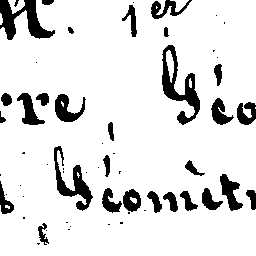 M. 1er
rre, Géo
Géomètr